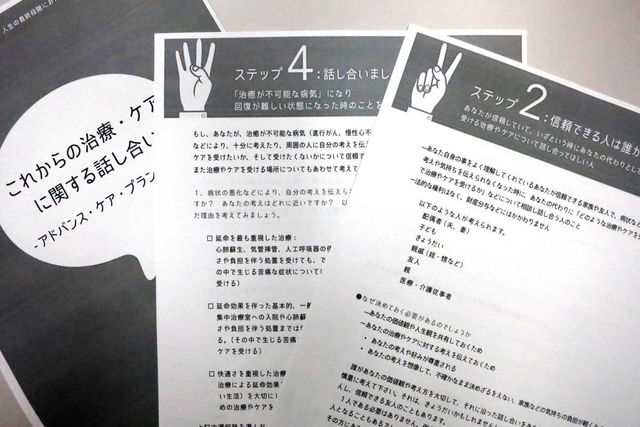 人生の最終段階にお
これからの治療・ケア
に関する話し合い
-アドバンス・ケア・プラン
ステップ4:話し合いまし
「治癒が不可能な病気」になり
回復が難しい状態になった時のことを
もし、あなたが、治癒が不可能な病気（進行がん、慢性心不
などにより、十分に考えたり、周囲の人に自分の考えを伝え
ケアを受けたいか、そして受けたくないかについて信頼で
また治療やケアを受ける場所についてもあわせて考えて
1、病状の悪化などにより、自分の考えを伝えら
すか？ あなたの考えはどれに近いですか？ 以
だ理由を考えてみましょう。
□ 延命を最も重視した治療：
心肺蘇生、気管挿管、人工呼吸器の
さや負担を伴う処置を受けても、で
の中で生じる苦痛な症状について
受ける）
□ 延命効果を伴った基本的、一
集中治療室への入院や心肺蘇
さや負担を伴う処置までは
る。（その中で生じる苦痛
ケアを受ける）
□ 快適さを重視した治療
治療による延命効果
い生活）を大切に
めの治療やケアを
ステップ2:信頼できる人は誰か
あなたが信頼していて、いざという時にあなたの代わりとして
受ける治療やケアについて話し合ってほしい人
―あなた自身の事をよく理解してくれているあなたが信頼できる家族や友人で、病状など
考えや気持ちを伝えられなくなった時に、あなたの代わりに「どのような治療やケアを
で治療やケアを受けるか」などについて相談し話し合う人のこと
―法的な権利はなく、財産分与などにはかかわりません
以下のような人が考えられます。
配偶者（夫、妻）
子ども
きょうだい
親戚（姪・甥など）
友人
親
医療・介護従事者
●なぜ決めておく必要があるのでしょうか
―あなたの価値観や人生観を共有しておくため
―あなたの治療やケアに対する考えを伝えておくため
・ あなたの考えや好みが尊重される
・ あなたの考えを想像して、不確かなまま決めざるをえない、家族などの気持ちの負担が軽くな
誰があなたの価値観や考え方を大切して、それに沿った話し合いをあな
慎重に考えて下さい。それは、きょうだいかもしれません
んし、信頼できる友人のこともあります。
1人である必要はありません。